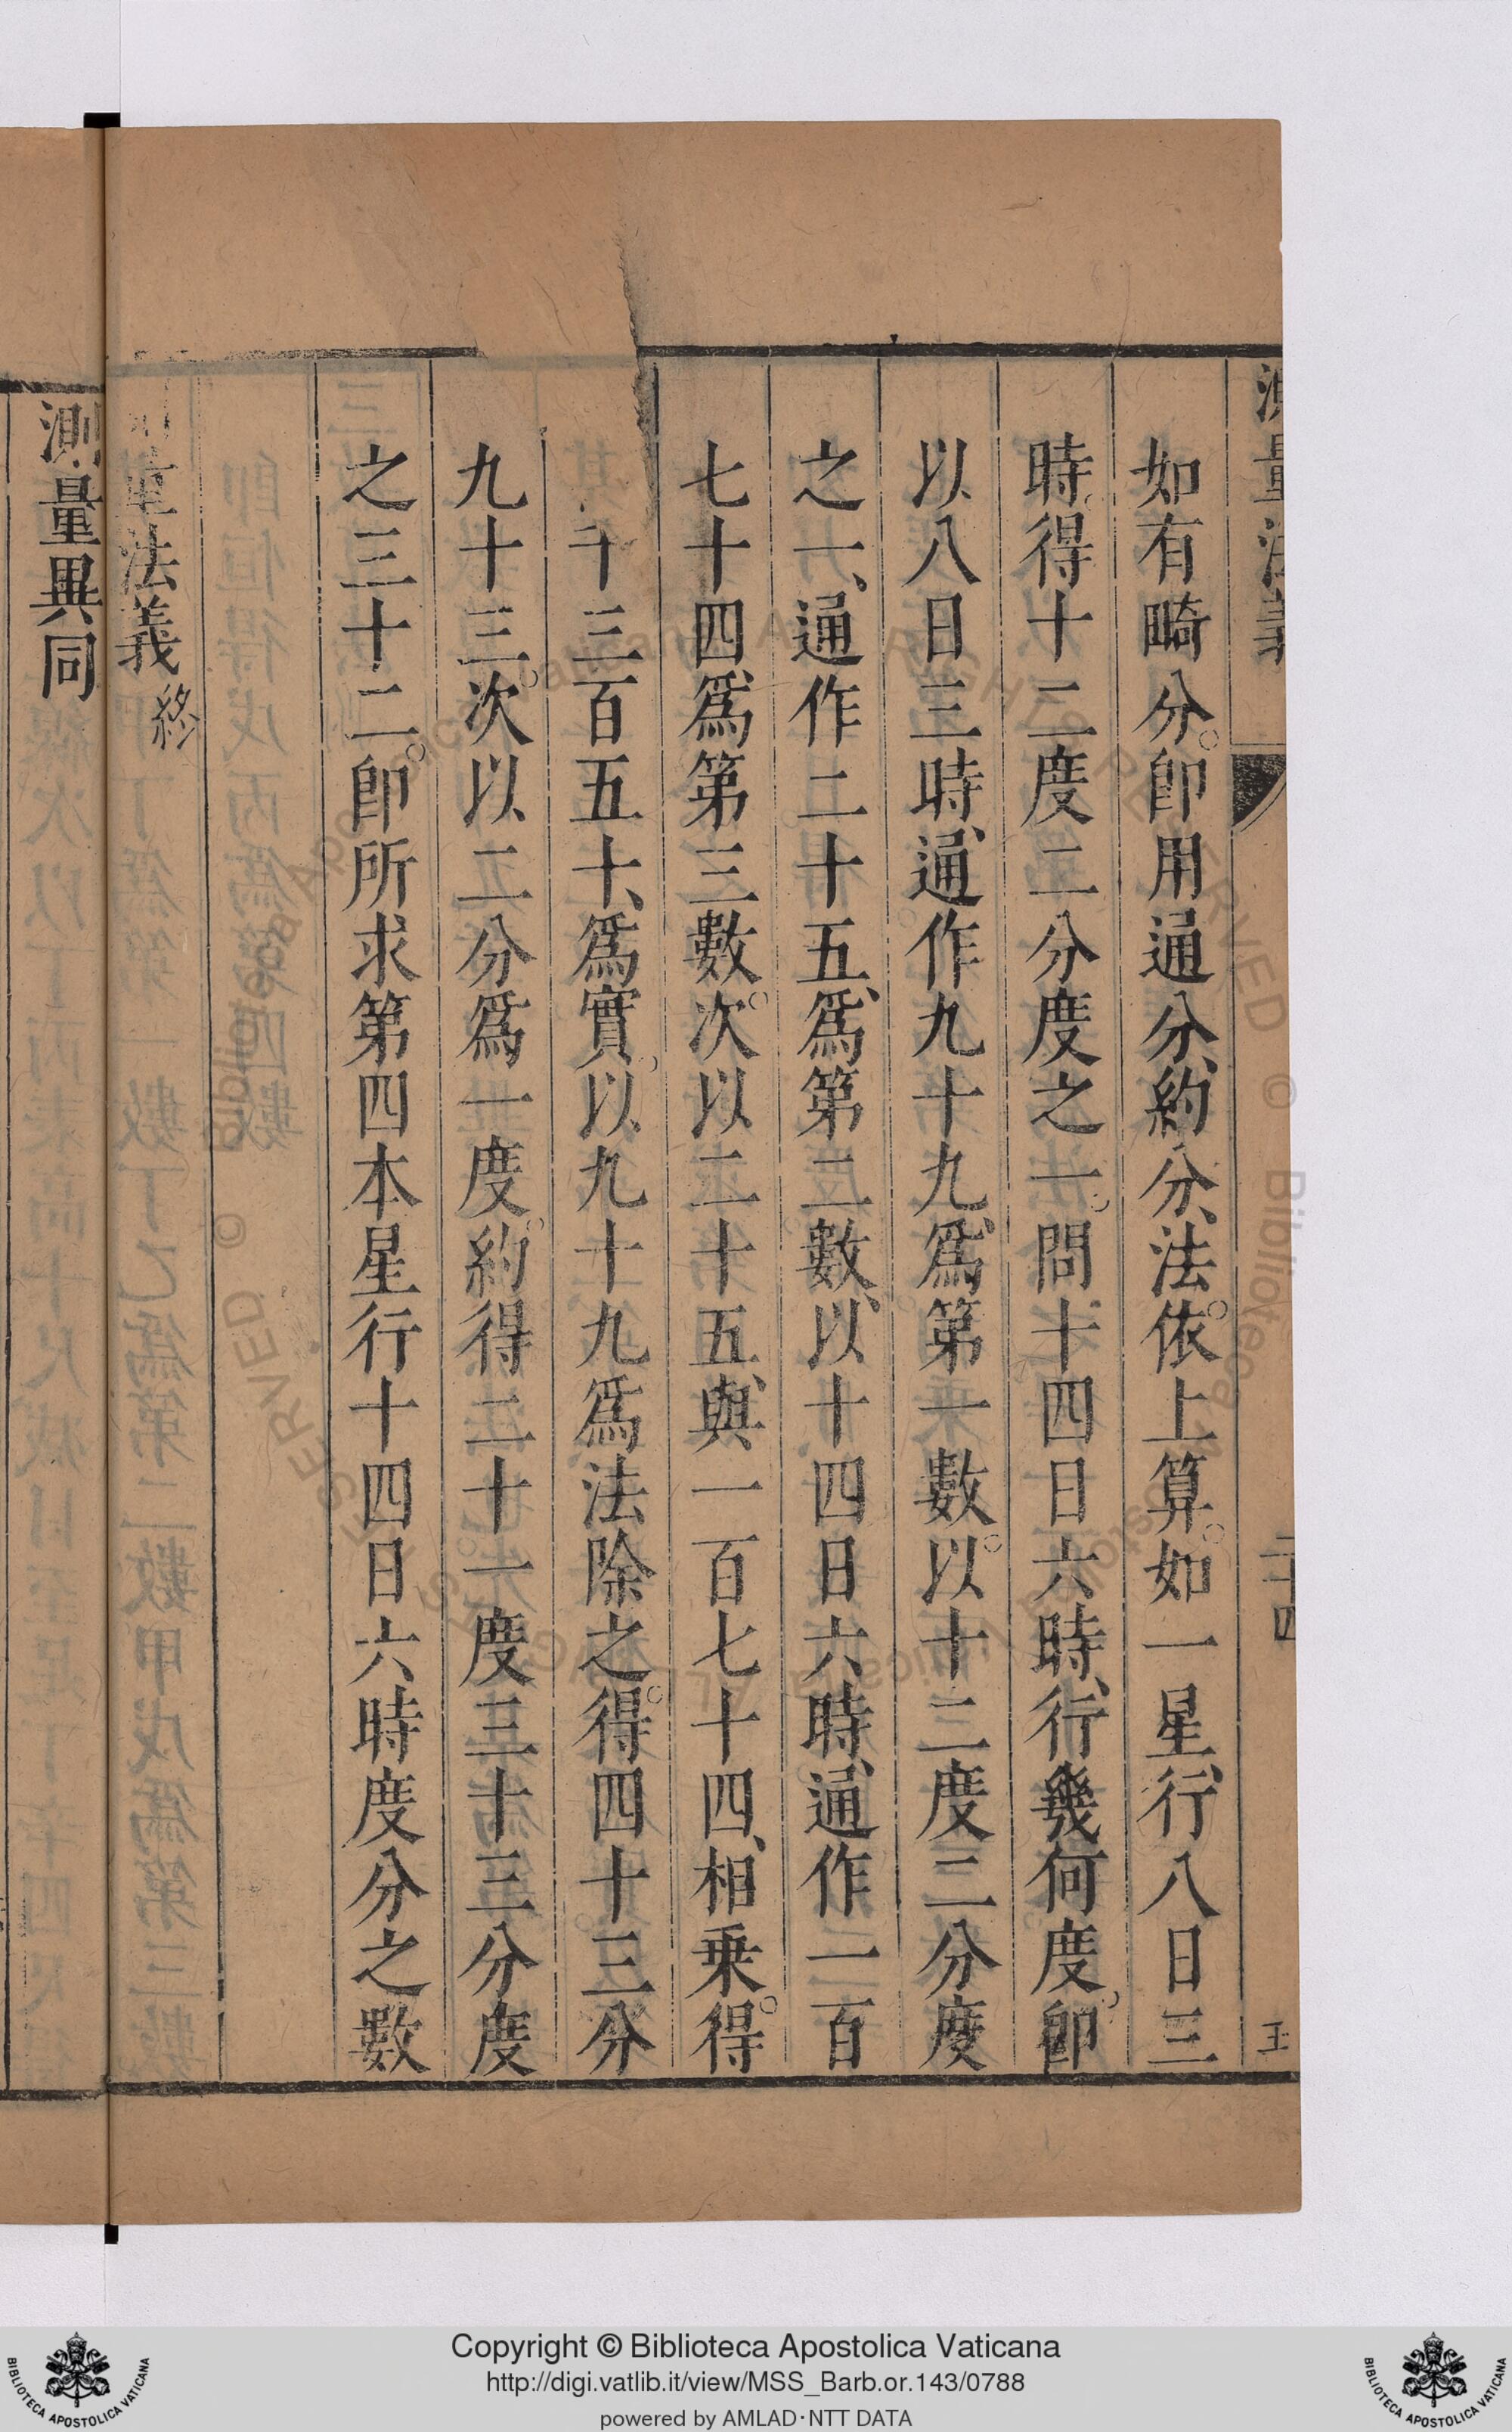 測量法義
二十四
如有畸分。卽用通分、約分、法。依上算。如一星、行八日三
時。得十二度二分度之一。問十四日六時、行幾何度。卽
以八日三時、通作九十九、爲第一數。以十二度二分度
之一、通作二十五、爲第二數、以十四日六時、通作一百
七十四、爲第三數。次以二十五、與一百七十四、相乗。得
千三百五十、爲實。以九十九爲法除之。得四十三分
九十三。次以二分爲一度。約得二十一度三十三分度
之三十二。卽所求第四本星行十四日六時度分之數
量法義終
測量異同
Copyright © Biblioteca Apostolica Vaticana
http://digi.vatlib.it/view/MSS_Barb.or.143/0788
powered by AMLAD·NTT DATA
BIBLIOTECA APOSTOLICA VATICANA
BIBLIOTECA APOSTOLICA VATICANA